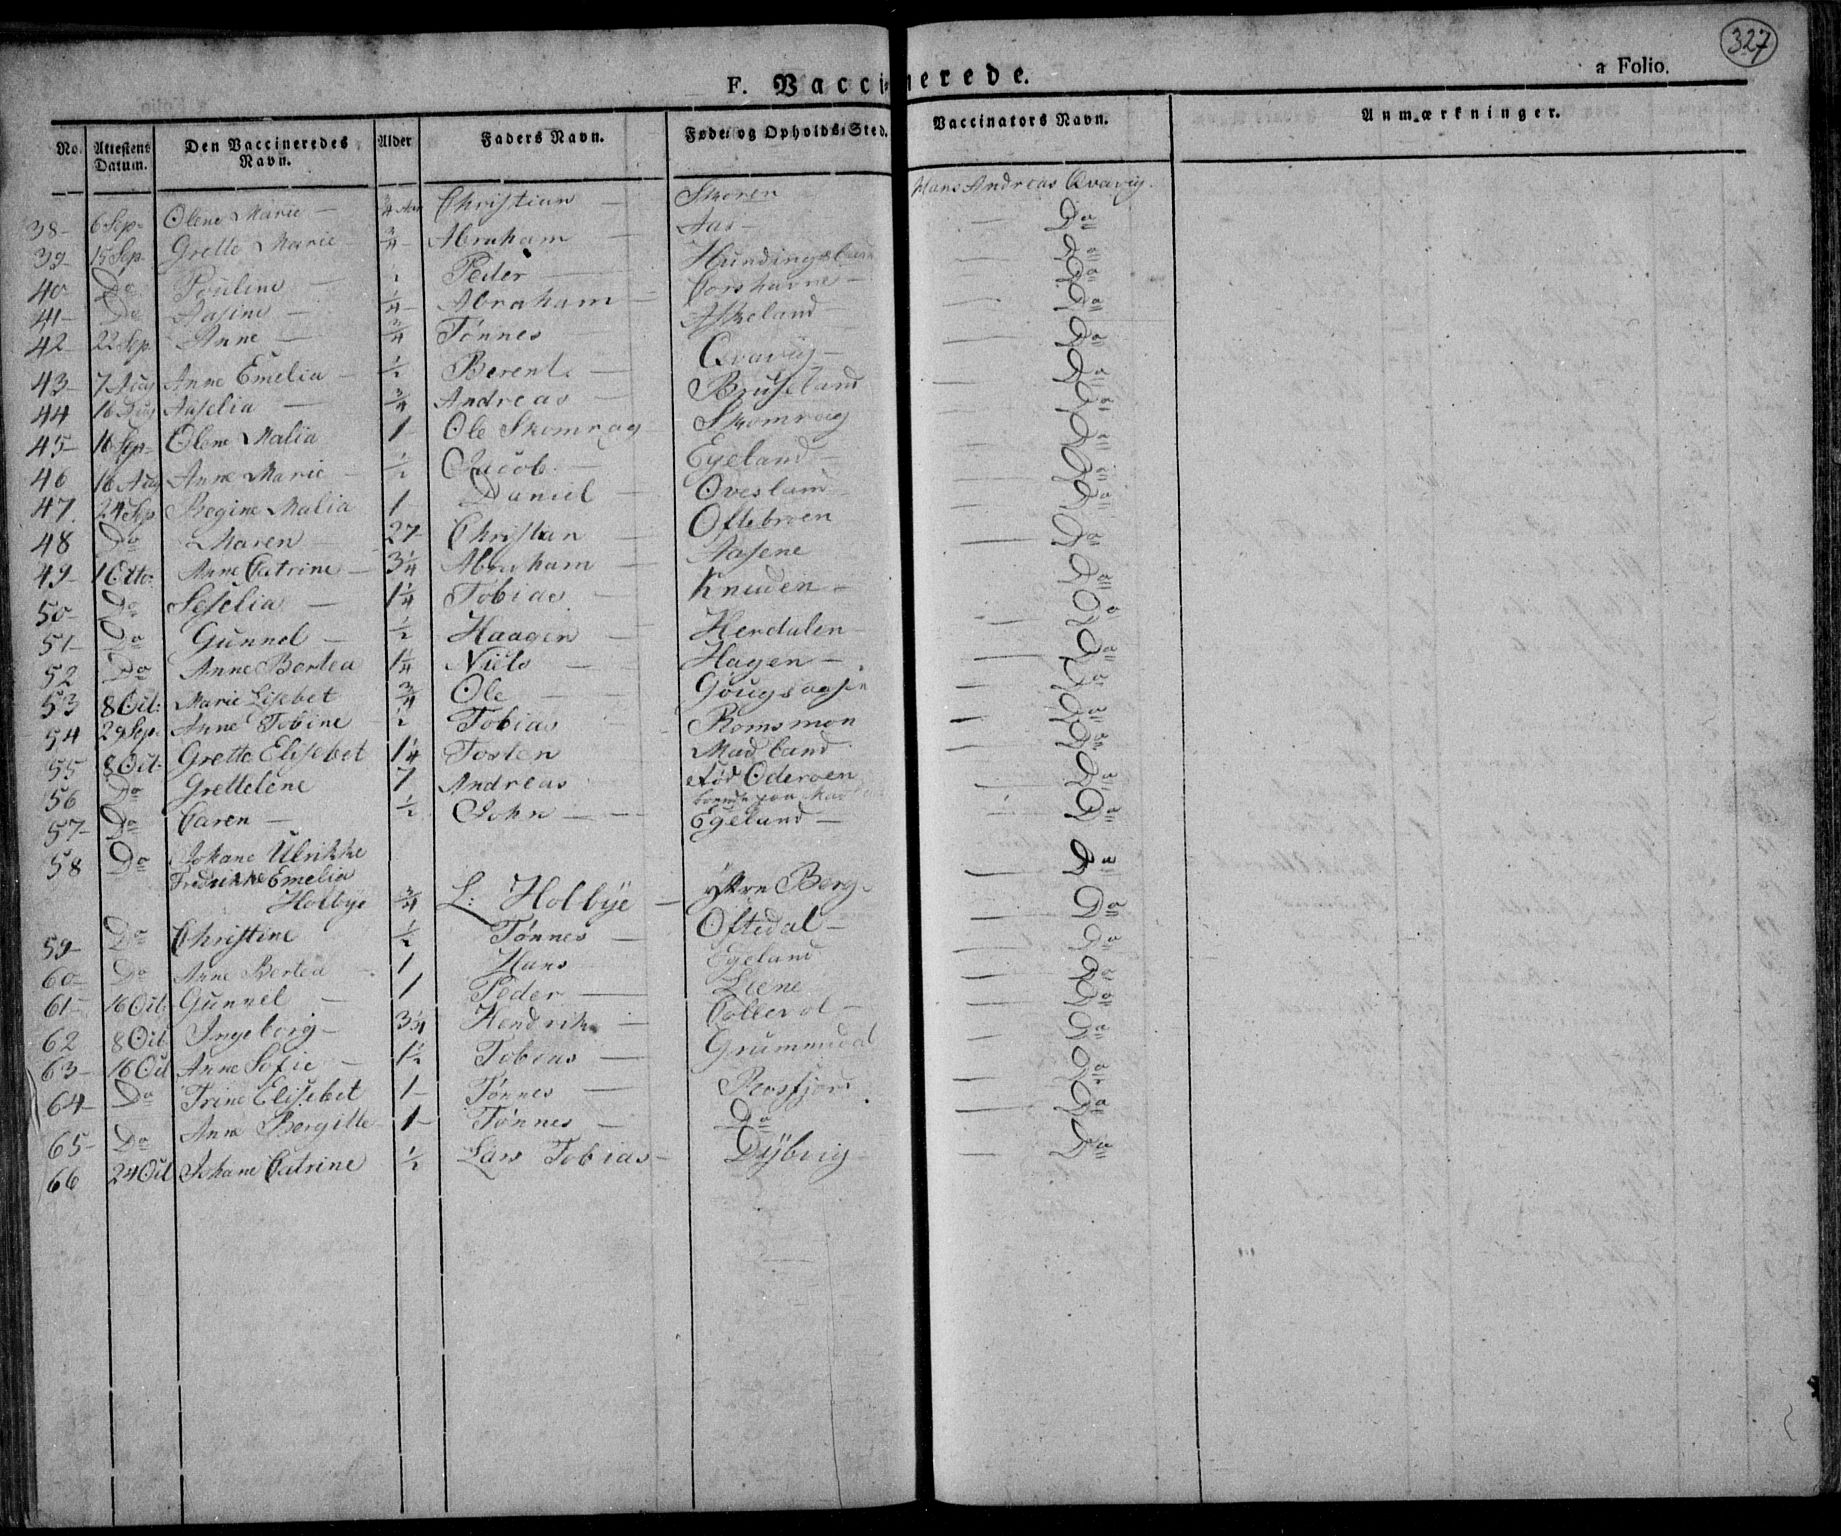 327
F. Vaccinerede.
a Folio.
No. Attestens Datum. Den Vaccineredes Navn. Alder Faders Navn. Føde- og Opholds-Sted. Vaccinators Navn. Anmærkninger.
38- 6 Sep- Olene Marie — 3/4 Aar Christian — Skoren Hans Andreas Qvavig.
39- 15 Sep. Grette Marie 3/4- Abraham — Aas — — Do
40 Do Pouline — Peder — — Do
41- Do Aasine — 1/4- Abraham — Corshavne — — Do
42- 22 Sep Anne — 3/4 Tønnes — Askeland — — Do
43- 7 Aug Anne Emelia — 1/2 Berent — Qvavig — — Do
44 16 Aug — 3/4 Andreas — Bruseland — Do
45- 16 Sep- Olene Malia 1- Ole Skomrag Skomrag — Do
46 16 Aug Anne Marie — 1/2 Jacob — Egeland — — Do
47. 24 Sep Regine Malia 1- Daniel — Ovesland — Do
48 Do Maren — 27- Christian — Oftebroen — Do
49- 1 Octo: Anne Catrine — 3 1/4 Abraham — Aasene — Do
50- Do Seselia — 1 1/4 Tobias — Knuden — — Do
51- Do Gunnel — 1/2 Haagen — Herdalen — Do
52 Do Anne Bertea 1 1/4 Niels — Hagen — — Do
53 8 Oct: Marie Lisebet 3/4 Ole — — Do
54 29 Sep. Anne Tobine — 1/2 Tobias — Romsmon — Do
55 8 Oct: Grette Elisebet 1 1/4 Tosten Madland — Do
56 Do Grettelene 7 Andreas fød Oderøen — Do
boende paa
57- Do Caren — 1/2 John — Egeland — — Do
58 Do Johane Ulrikke — Do
Fredrikke Emelia
Holbye 3/4 L: Holbye — ystre Berg — Do
59- Do Christine 1/2 Tønnes — Oftedal — — Do
60- Do Anne Bertea — 1 Hans Egeland — Do
61- 16 Oct: Gunnel — 1 Peder — Liene — Do
62 8 Oct Ingeborg — 3 1/4 Hendrik — — Do
63- 16 Oct Anne Sofie — 1 1/2 Tobias — Grummedal — Do
64- Do Trine Elisebet 1- Tønnes — Rosfjord — Do
65- Do Anne Bergitte 1- Tønnes — Do — Do
66 24 Oct Johane Catrine 1/2 Lars Tobias — Dybvig — Do